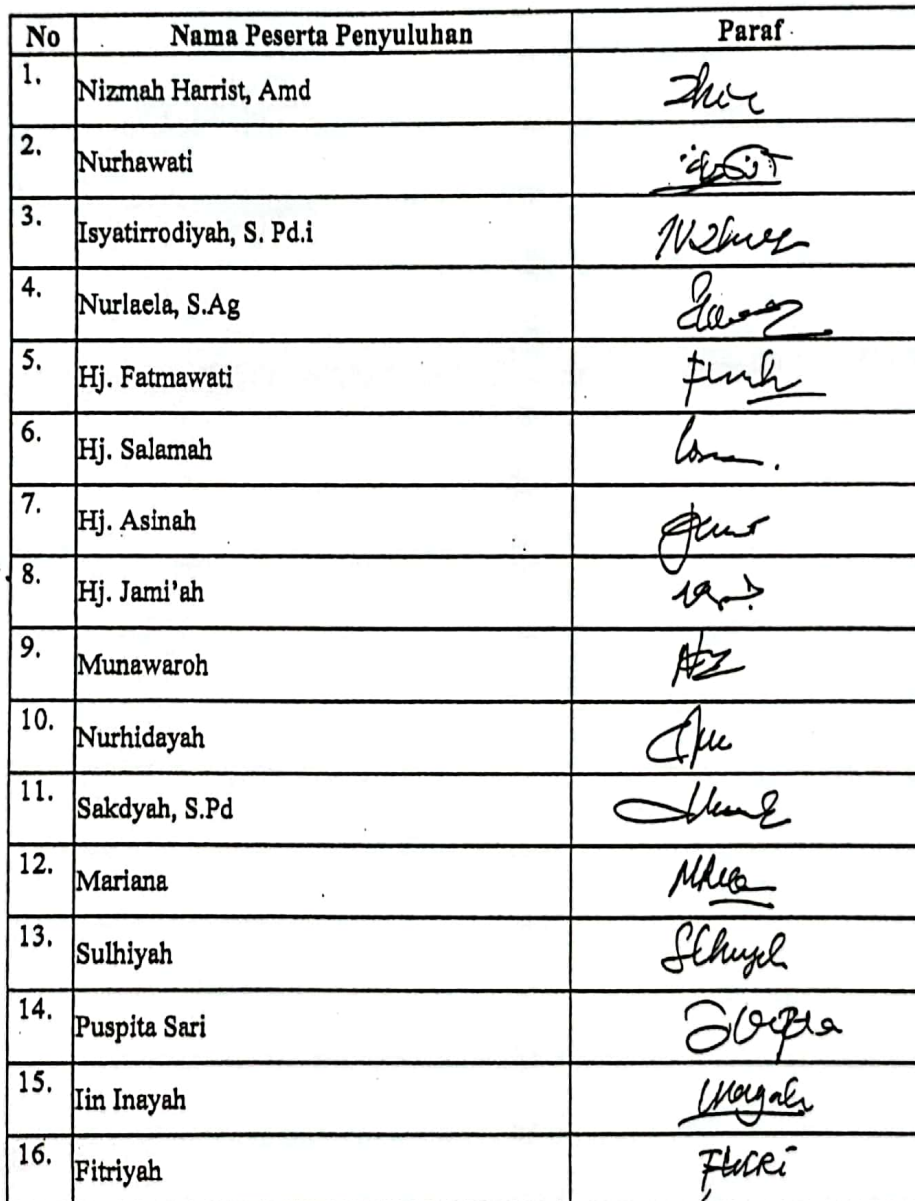 No Nama Peserta Penyuluhan Paraf
1. Nizmah Harrist, Amd
2. Nurhawati
3. Isyatirrodiyah, S. Pd.i
4. Nurlaela, S.Ag
5. Hj. Fatmawati
6. Hj. Salamah
7. Hj. Asinah
8. Hj. Jami'ah
9. Munawaroh
10. Nurhidayah
11. Sakdyah, S.Pd
12. Mariana
13. Sulhiyah
14. Puspita Sari
15. Iin Inayah
16. Fitriyah